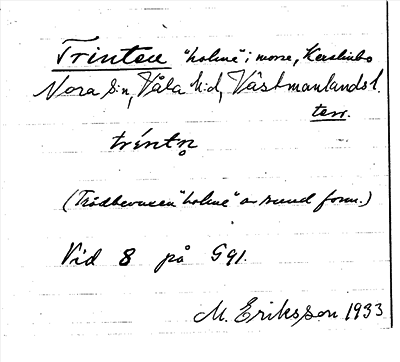 Trinten "holme" i mosse, Kerstinbo
Nora sn, Våla hd, Västmanlands l.
terr.
tríntn̥
(Trädbevuxen "holme" av rund form.)
Vid 8 på G91.
M. Eriksson 1933